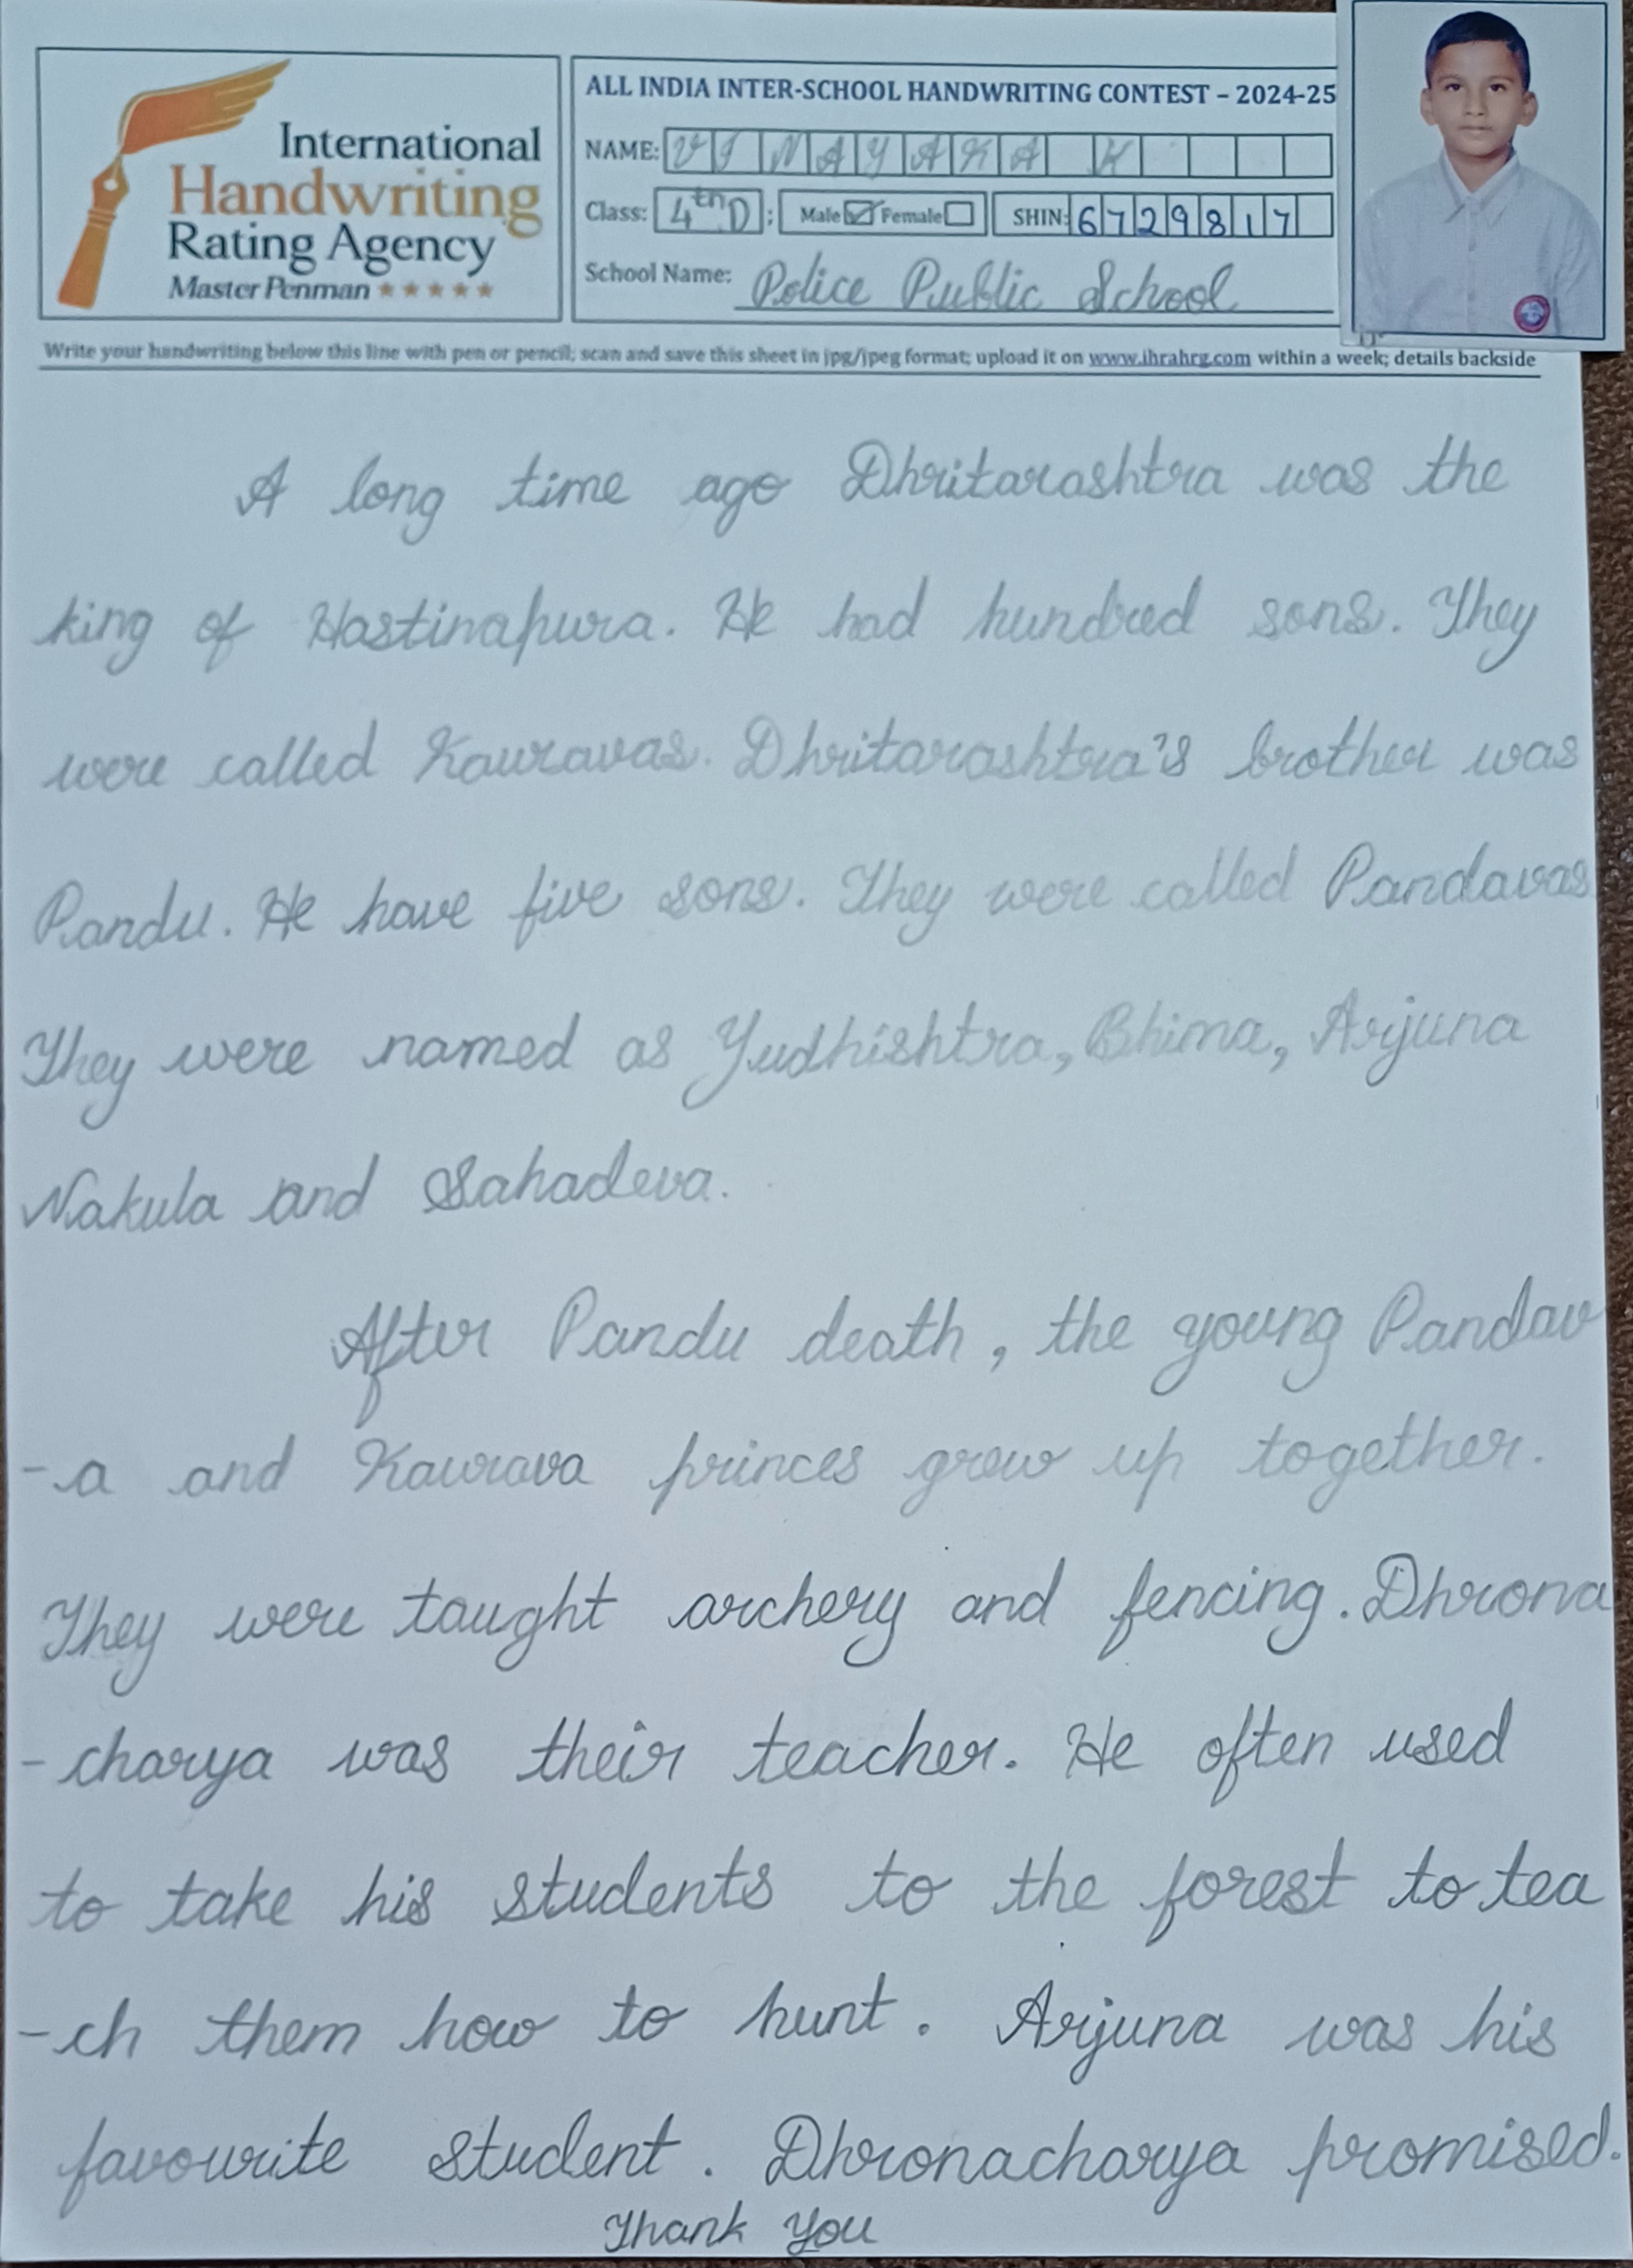 International
Handwriting
Rating Agency
Master Penman ★★★★★
ALL INDIA INTER-SCHOOL HANDWRITING CONTEST – 2024-25
NAME: VINAYAKA K
Class: 4th D; Male ☑ Female ☐ SHIN: 6729817
School Name: Police Public School
Write your handwriting below this line with pen or pencil; scan and save this sheet in jpg/jpeg format; upload it on www.ihrahrg.com within a week; details backside
A long time ago Dhritarashtra was the
king of Hastinapura. He had hundred sons. They
were called Kauravas. Dhritarashtra's brother was
Pandu. He have five sons. They were called Pandavas
They were named as Yudhishtra, Bhima, Arjuna
Nakula and Sahadeva.
After Pandu death, the young Pandav
-a and Kaurava princes grow up together.
They were taught archery and fencing. Dhrona
-charya was their teacher. He often used
to take his students to the forest to tea
-ch them how to hunt. Arjuna was his
favourite student. Dhronacharya promised.
Thank You